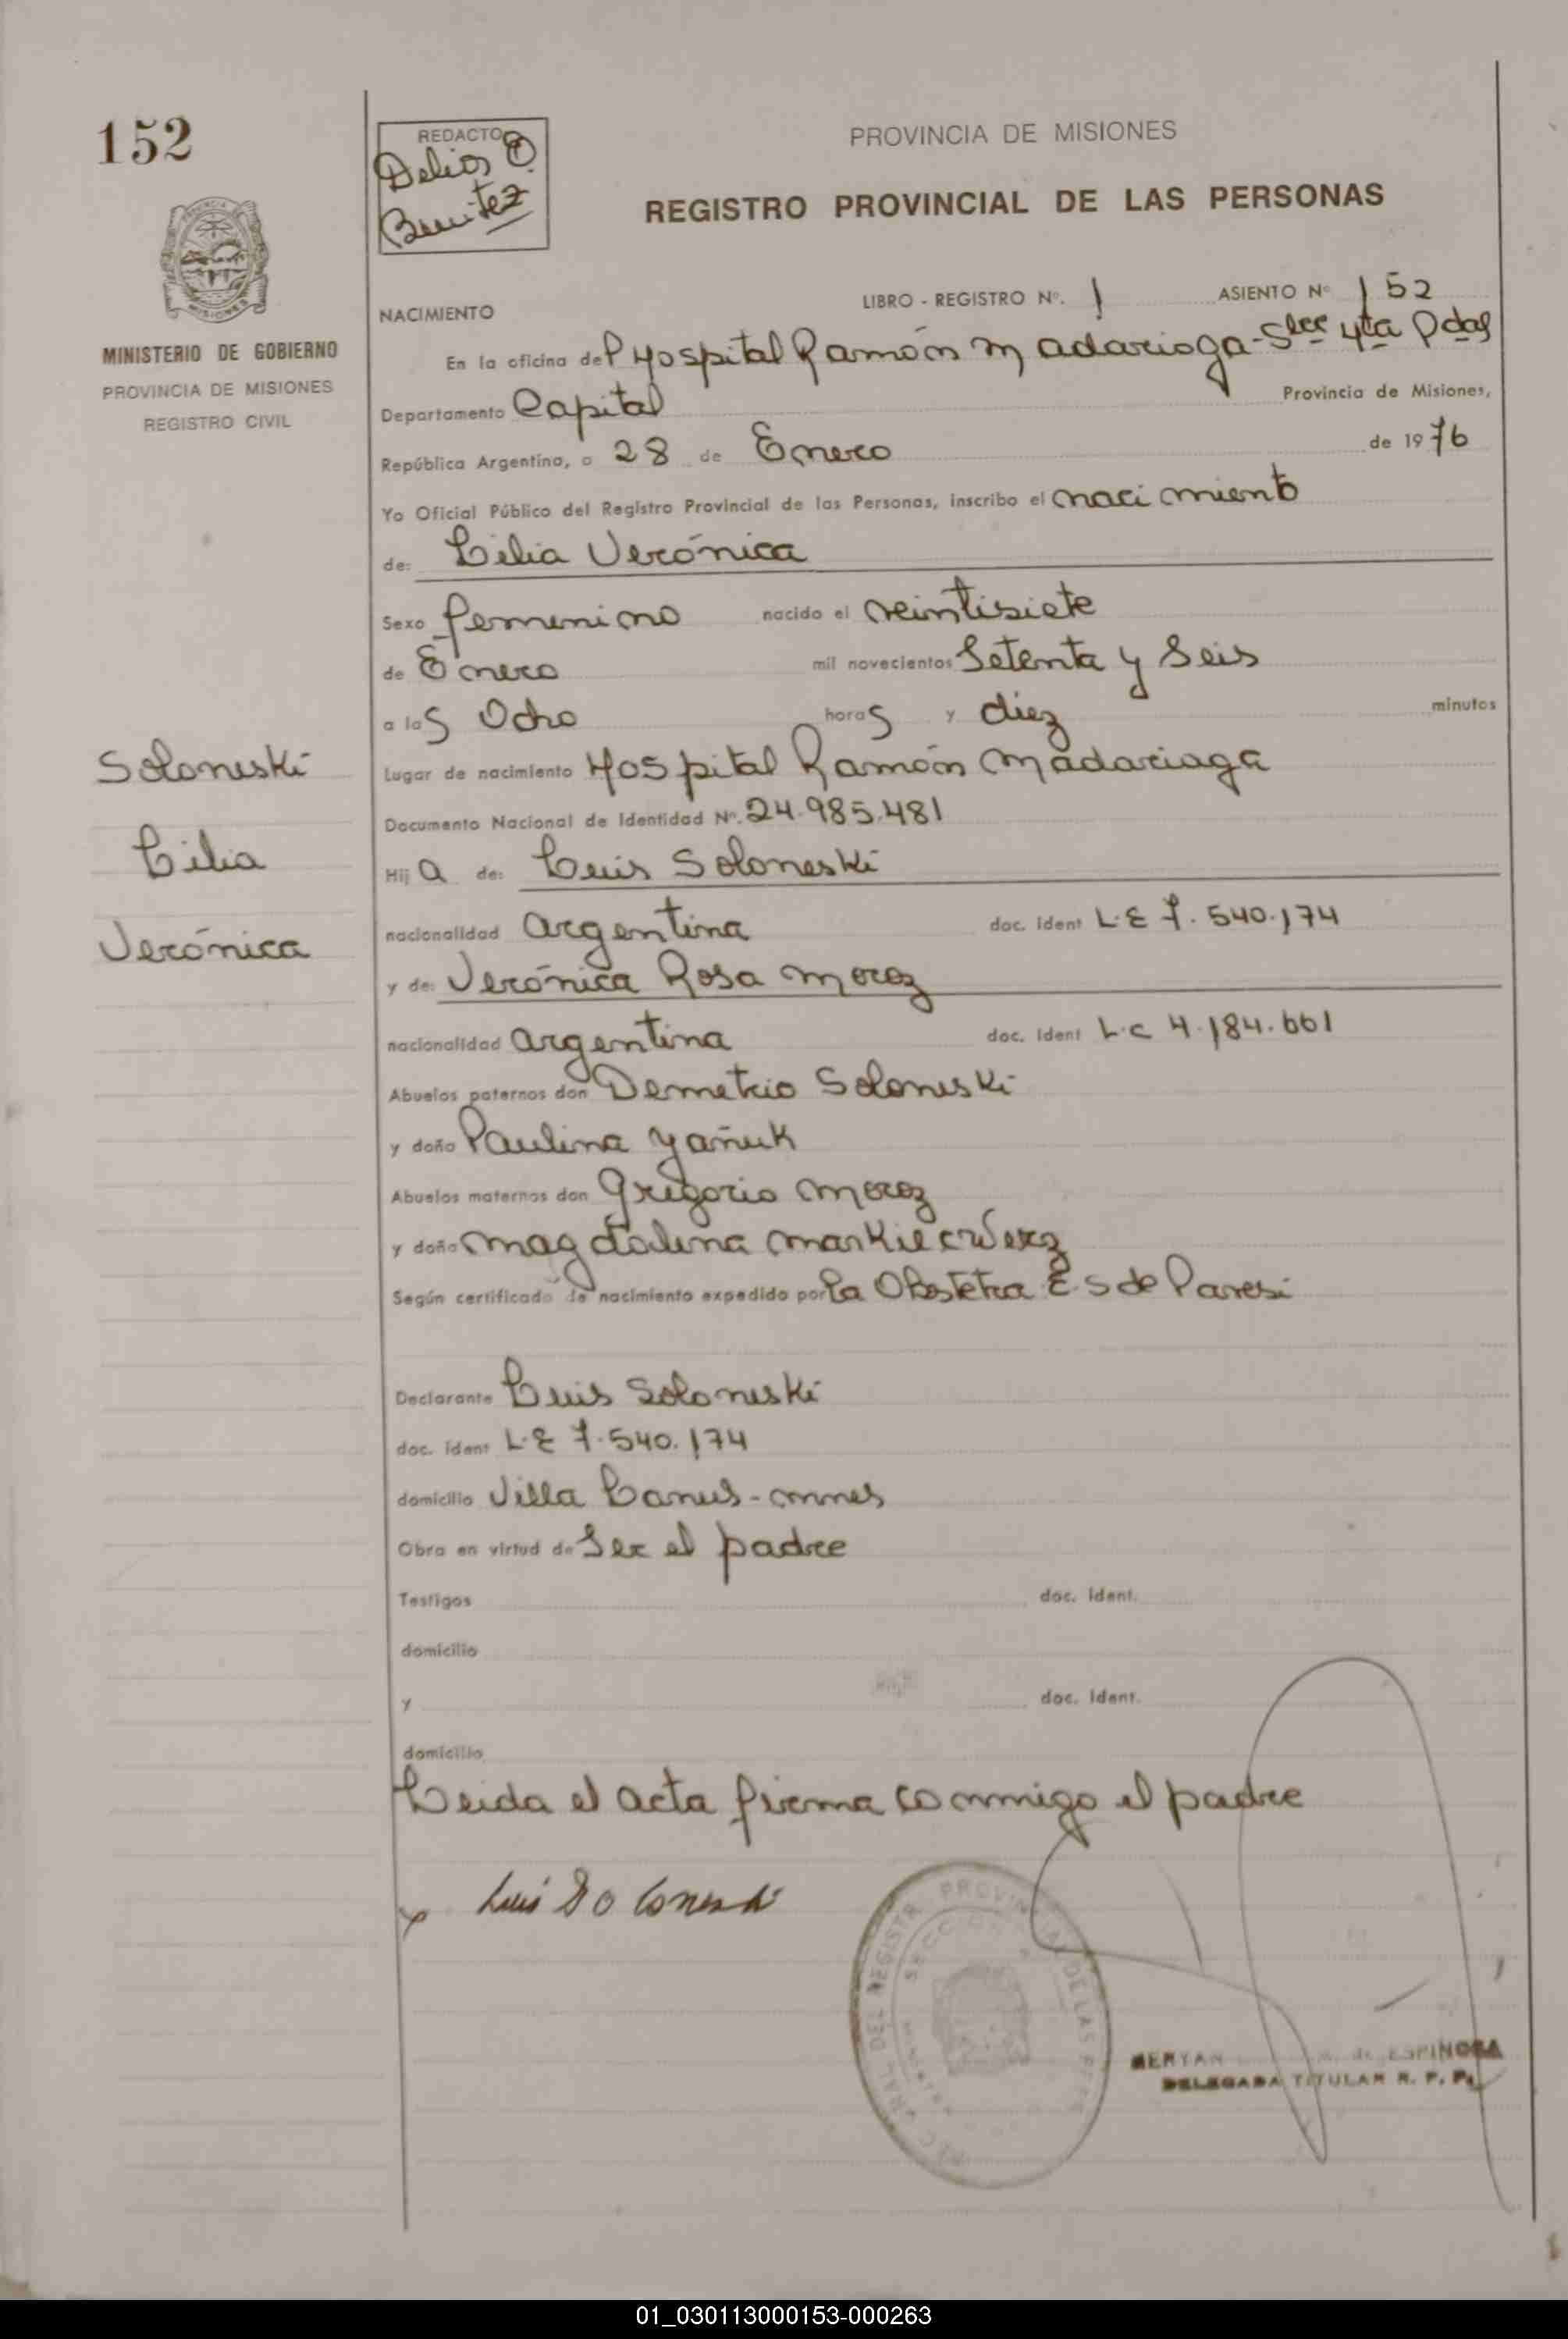 152
REDACTO
Delios E.
Benitez
PROVINCIA DE MISIONES
REGISTRO PROVINCIAL DE LAS PERSONAS
MINISTERIO DE GOBIERNO
PROVINCIA DE MISIONES
REGISTRO CIVIL
NACIMIENTO LIBRO - REGISTRO Nº. 1 ASIENTO Nº 152
En la oficina del Hospital Ramón Madariaga - Secc 4ta Pdas
Departamento Capital Provincia de Misiones,
República Argentina, a 28 de Enero de 1976
Yo Oficial Público del Registro Provincial de las Personas, inscribo el nacimiento
de: Lilia Verónica
Sexo femenino nacido el veintisiete
de Enero mil novecientos Setenta y Seis
a las Ocho horas y diez minutos
Soloneski
Lilia
Verónica
Lugar de nacimiento Hospital Ramón Madariaga
Documento Nacional de Identidad Nº. 24.985.481
Hija de: Luis Soloneski
nacionalidad argentina doc. ident L.E 7.540.174
y de: Verónica Rosa Moroz
nacionalidad argentina doc. ident L.C 4.184.661
Abuelos paternos don Demetrio Soloneski
y doña Paulina Yañuk
Abuelos maternos don Gregorio Moroz
y doña Magdalena
Según certificado de nacimiento expedido por la Obstetra E. S de Paresi
Declarante Luis Soloneski
doc. ident L.E 7.540.174
domicilio Villa Lanus - mnes
Obra en virtud de Ser el padre
Testigos doc. ident.
domicilio
y doc. ident.
domicilio
Leida el acta firma conmigo el padre
Luis Soloneski
PROVINCIAL DE LAS
MERYAN de ESPINOSA
DELEGADA TITULAR R. P. P.
01_030113000153-000263